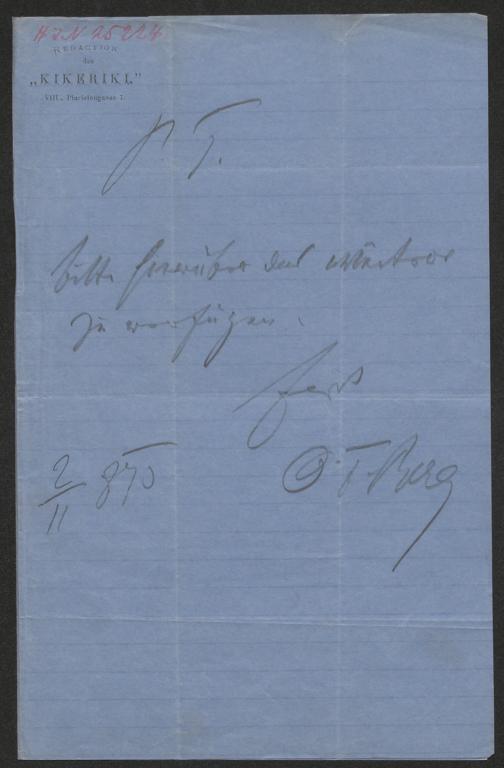 H.I.N 25224
REDACTION
des
„KIKERIKI."
VIII., Piaristengasse 7.
P. T.
bitte hierüber das Weitere
zu verfügen.
O. F. Berg
2/11 870